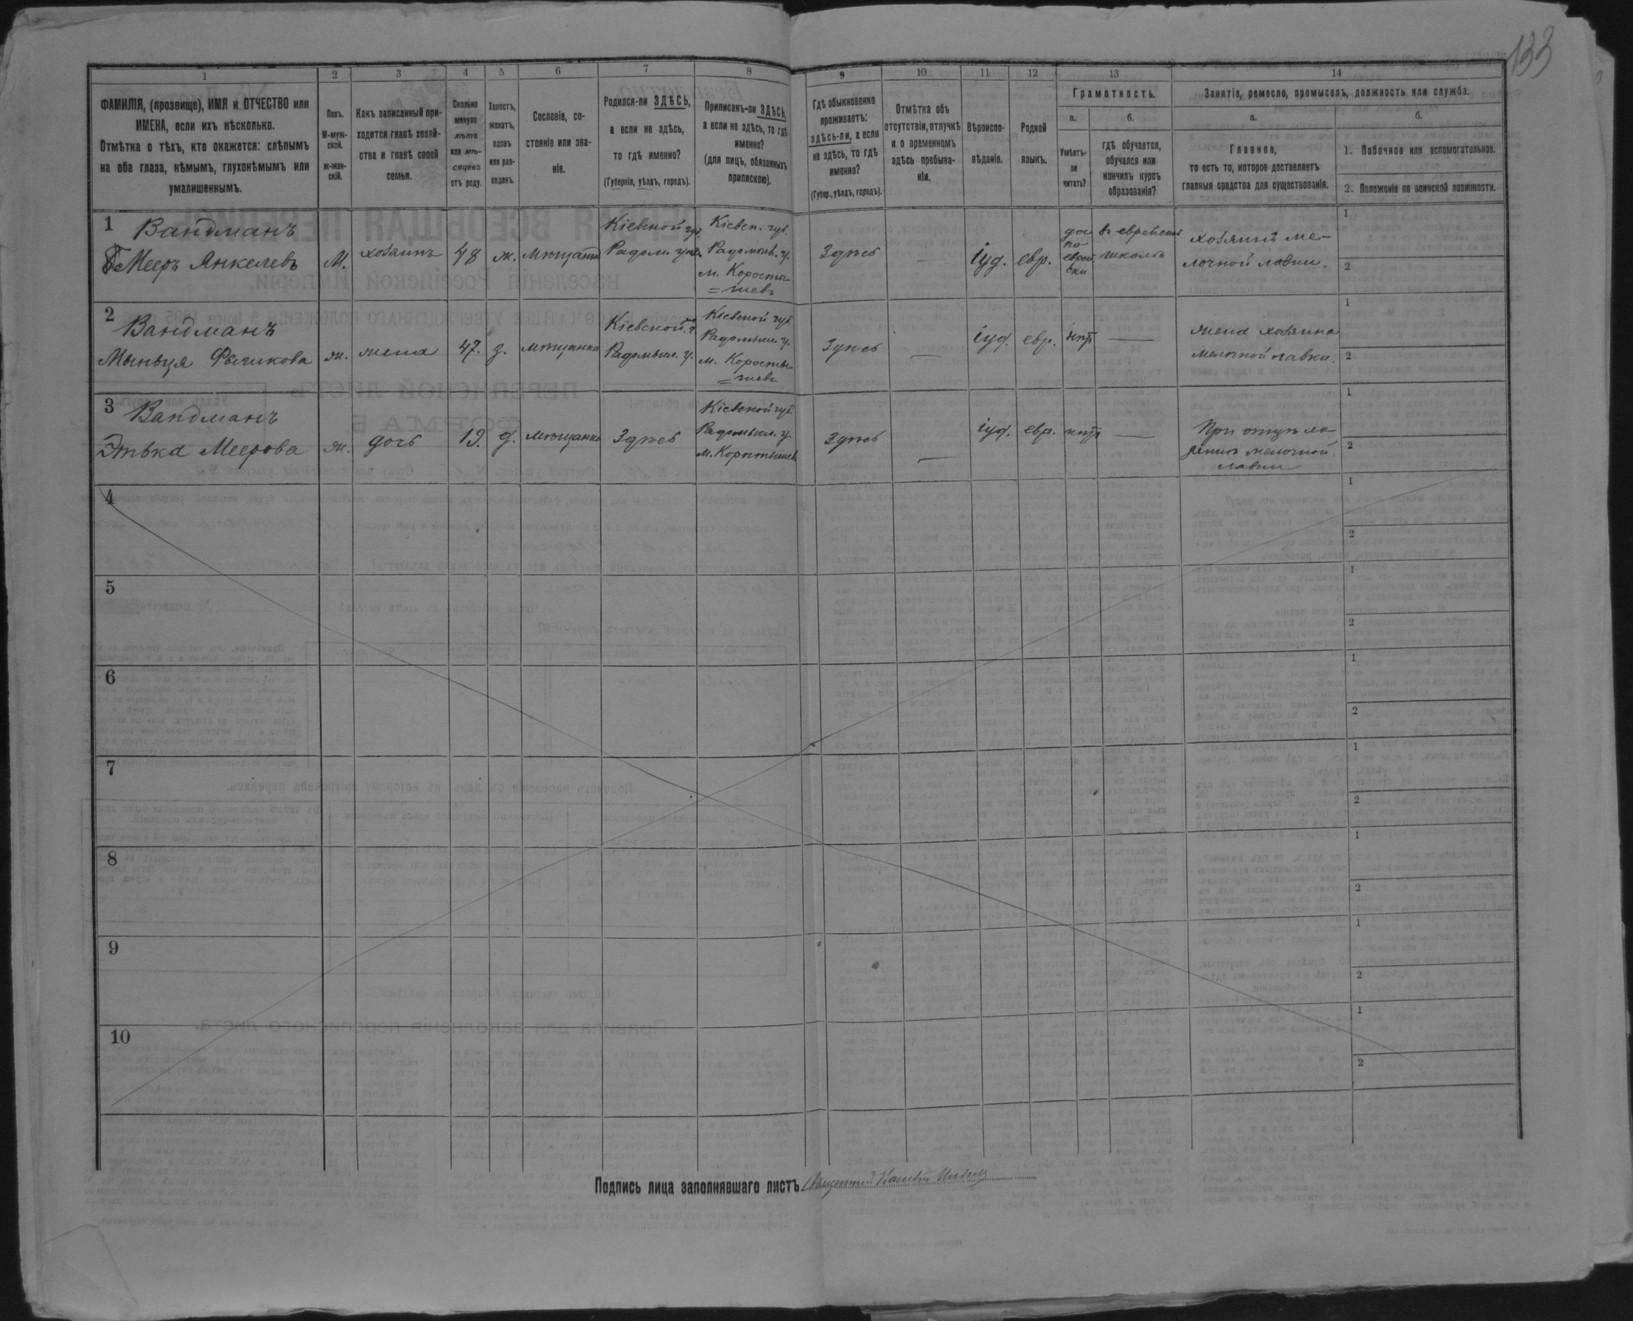 133
1 2 3 4 5 6 7 8 9 10 11 12 13 14
ФАМИЛІЯ, (прозвище), ИМЯ и ОТЧЕСТВО или
ИМЕНА, если ихъ нѣсколько.
Отмѣтка о тѣхъ, кто окажется: слѣпымъ
на оба глаза, нѣмымъ, глухонѣмымъ или
умалишеннымъ.
Полъ.
М-муж-
ской.
ж-жен-
скій.
Какъ записанный при-
ходится главѣ хозяй-
ства и главѣ своей
семьи.
Сколько
минуло
лѣтъ
или мѣ-
сяцевъ
отъ роду.
Холостъ,
женатъ,
вдовъ
или раз-
веденъ.
Сословіе, со-
стояніе или зва-
ніе.
Родился-ли ЗДѢСЬ,
а если не здѣсь,
то гдѣ именно?
(Губернія, уѣздъ, городъ).
Приписанъ-ли ЗДѢСЬ,
а если не здѣсь, то гдѣ
именно?
(для лицъ, обязанныхъ
припискою).
Гдѣ обыкновенно
проживаетъ:
здѣсь-ли, а если
не здѣсь, то гдѣ
именно?
(Губер., уѣздъ, городъ).
Отмѣтка объ
отсутствіи, отлучкѣ
и о временномъ
здѣсь пребыва-
ніи.
Вѣроиспо-
вѣданіе.
Родной
языкъ.
Грамотность.
а.
Умѣетъ-
ли
читать?
б.
гдѣ обучается,
обучался или
кончилъ курсъ
образованія?
Занятіе, ремесло, промыселъ, должность или служба.
а.
Главное,
то есть то, которое доставляетъ
главныя средства для существованія.
б.
1. Побочное или вспомогательное.
2. Положеніе по воинской повинности.
1 Вандманъ
Мееръ Янкелевъ
М.
хозяинъ
48
ж.
мѣщанинъ
Кіевской губ.
Радом. у.
Кіевск. губ.
Радомысл. у.
м. Коросты-
=шевъ
Здѣсь
—
іуд.
евр.
да
по-
еврей
ски
въ еврейской
школѣ
хозяинъ ме-
лочной лавки.
1
2
2 Вандманъ
Мыньця Фроимова
ж.
жена
47.
з.
мѣщанка
Кіевской г.
Радомысл. у.
Кіевской губ.
Радомысл. у.
м. Коросты-
=шевъ
Здѣсь
—
іуд.
евр.
нѣтъ
—
жена хозяина
мелочной лавки.
1
2
3 Вандманъ
Этька Меерова
ж.
дочь
19.
д.
мѣщанка
Здѣсь
Кіевской губ.
Радомысл. у.
м. Коростышев
Здѣсь
—
іуд.
евр.
нѣтъ
—
При отцѣ
мелочной
лавки
1
2
4
1
2
5
1
2
6
1
2
7
1
2
8
1
2
9
1
2
10
1
2
Подпись лица заполнявшаго листъ